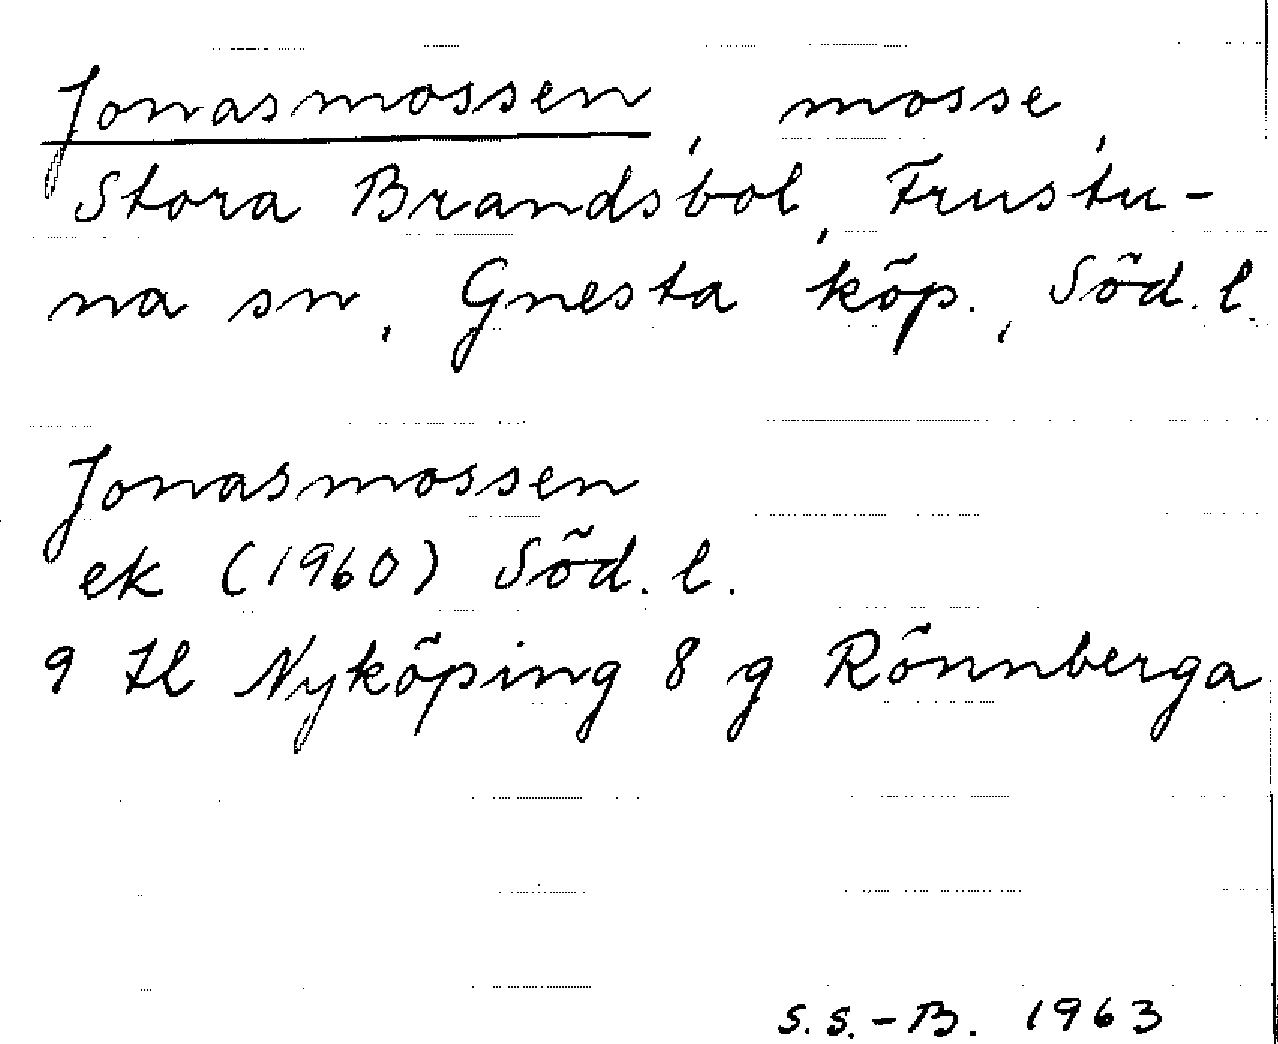 Jonasmossen, mosse,
Stora Brandsbol, Frustu-
na sn, Gnesta köp., Söd. l.
Jonasmossen
ek (1960) Söd. l.
9 H Nyköping 8 g Rönnberga
S.S.-B. 1963